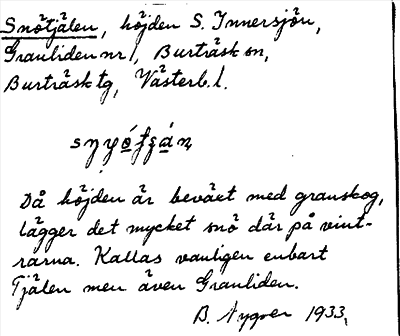 Snötjälen, höjden S. Innersjön,
Granliden nr 1, Burträsk sn,
Burträsk tg, Västerb. l.
Då höjden är beväxt med granskog,
lägger det mycket snö där på vint-
rarna. Kallas vanligen enbart
Tjälen men även Granliden.
B. Nygren 1933.